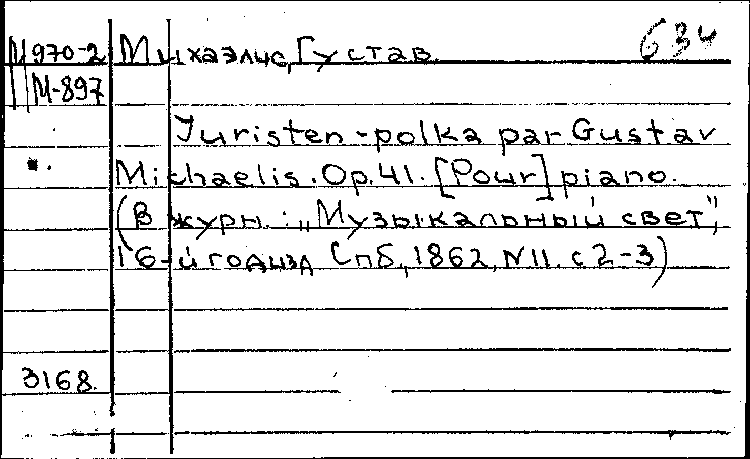 М970-2 Михаэлис, Густав. 634
М-897
Juristen-polka par Gustav
Michaelis. Op. 41. [Pour] piano.
(В журн.: „Музыкальный свет",
16-й год изд Спб, 1862, N 11. с 2-3)
3168.